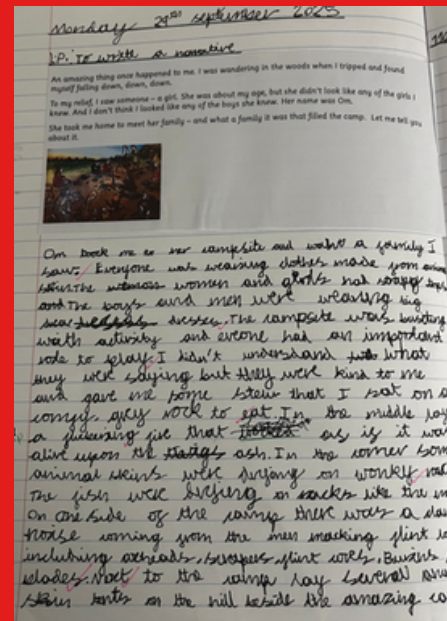 Monday 29th september 2025
L.P: To write a narrative
An amazing thing once happened to me. I was wandering in the woods when I tripped and found
myself falling down, down, down.
To my relief, I saw someone – a girl. She was about my age, but she didn't look like any of the girls I
knew. And I don't think I looked like any of the boys she knew. Her name was Om.
She took me home to meet her family – and what a family it was that filled the camp. Let me tell you
about it.
Om took me to her campsite and what a family I
saw. Everyone was wearing clothes made from
skin. The women and had
and The boys and men were wearing big
dresses. The campsite was busting
with activity and everone had an important
role to play. I didn't understand what
they were saying but they were kind to me
and gave me some stew that I sat on a
comfy grey rock to eat. In the middle lay
a fire that as is it was
alive upon the ash. In the corner som
animal skins were on wonky
The fish were on racks like the
On one side of the camp there was a
noise coming from the men flint
including axeheads, scrapers, flint cores,
blades. Next to the camp lay several
tents on the hill beside the amazing